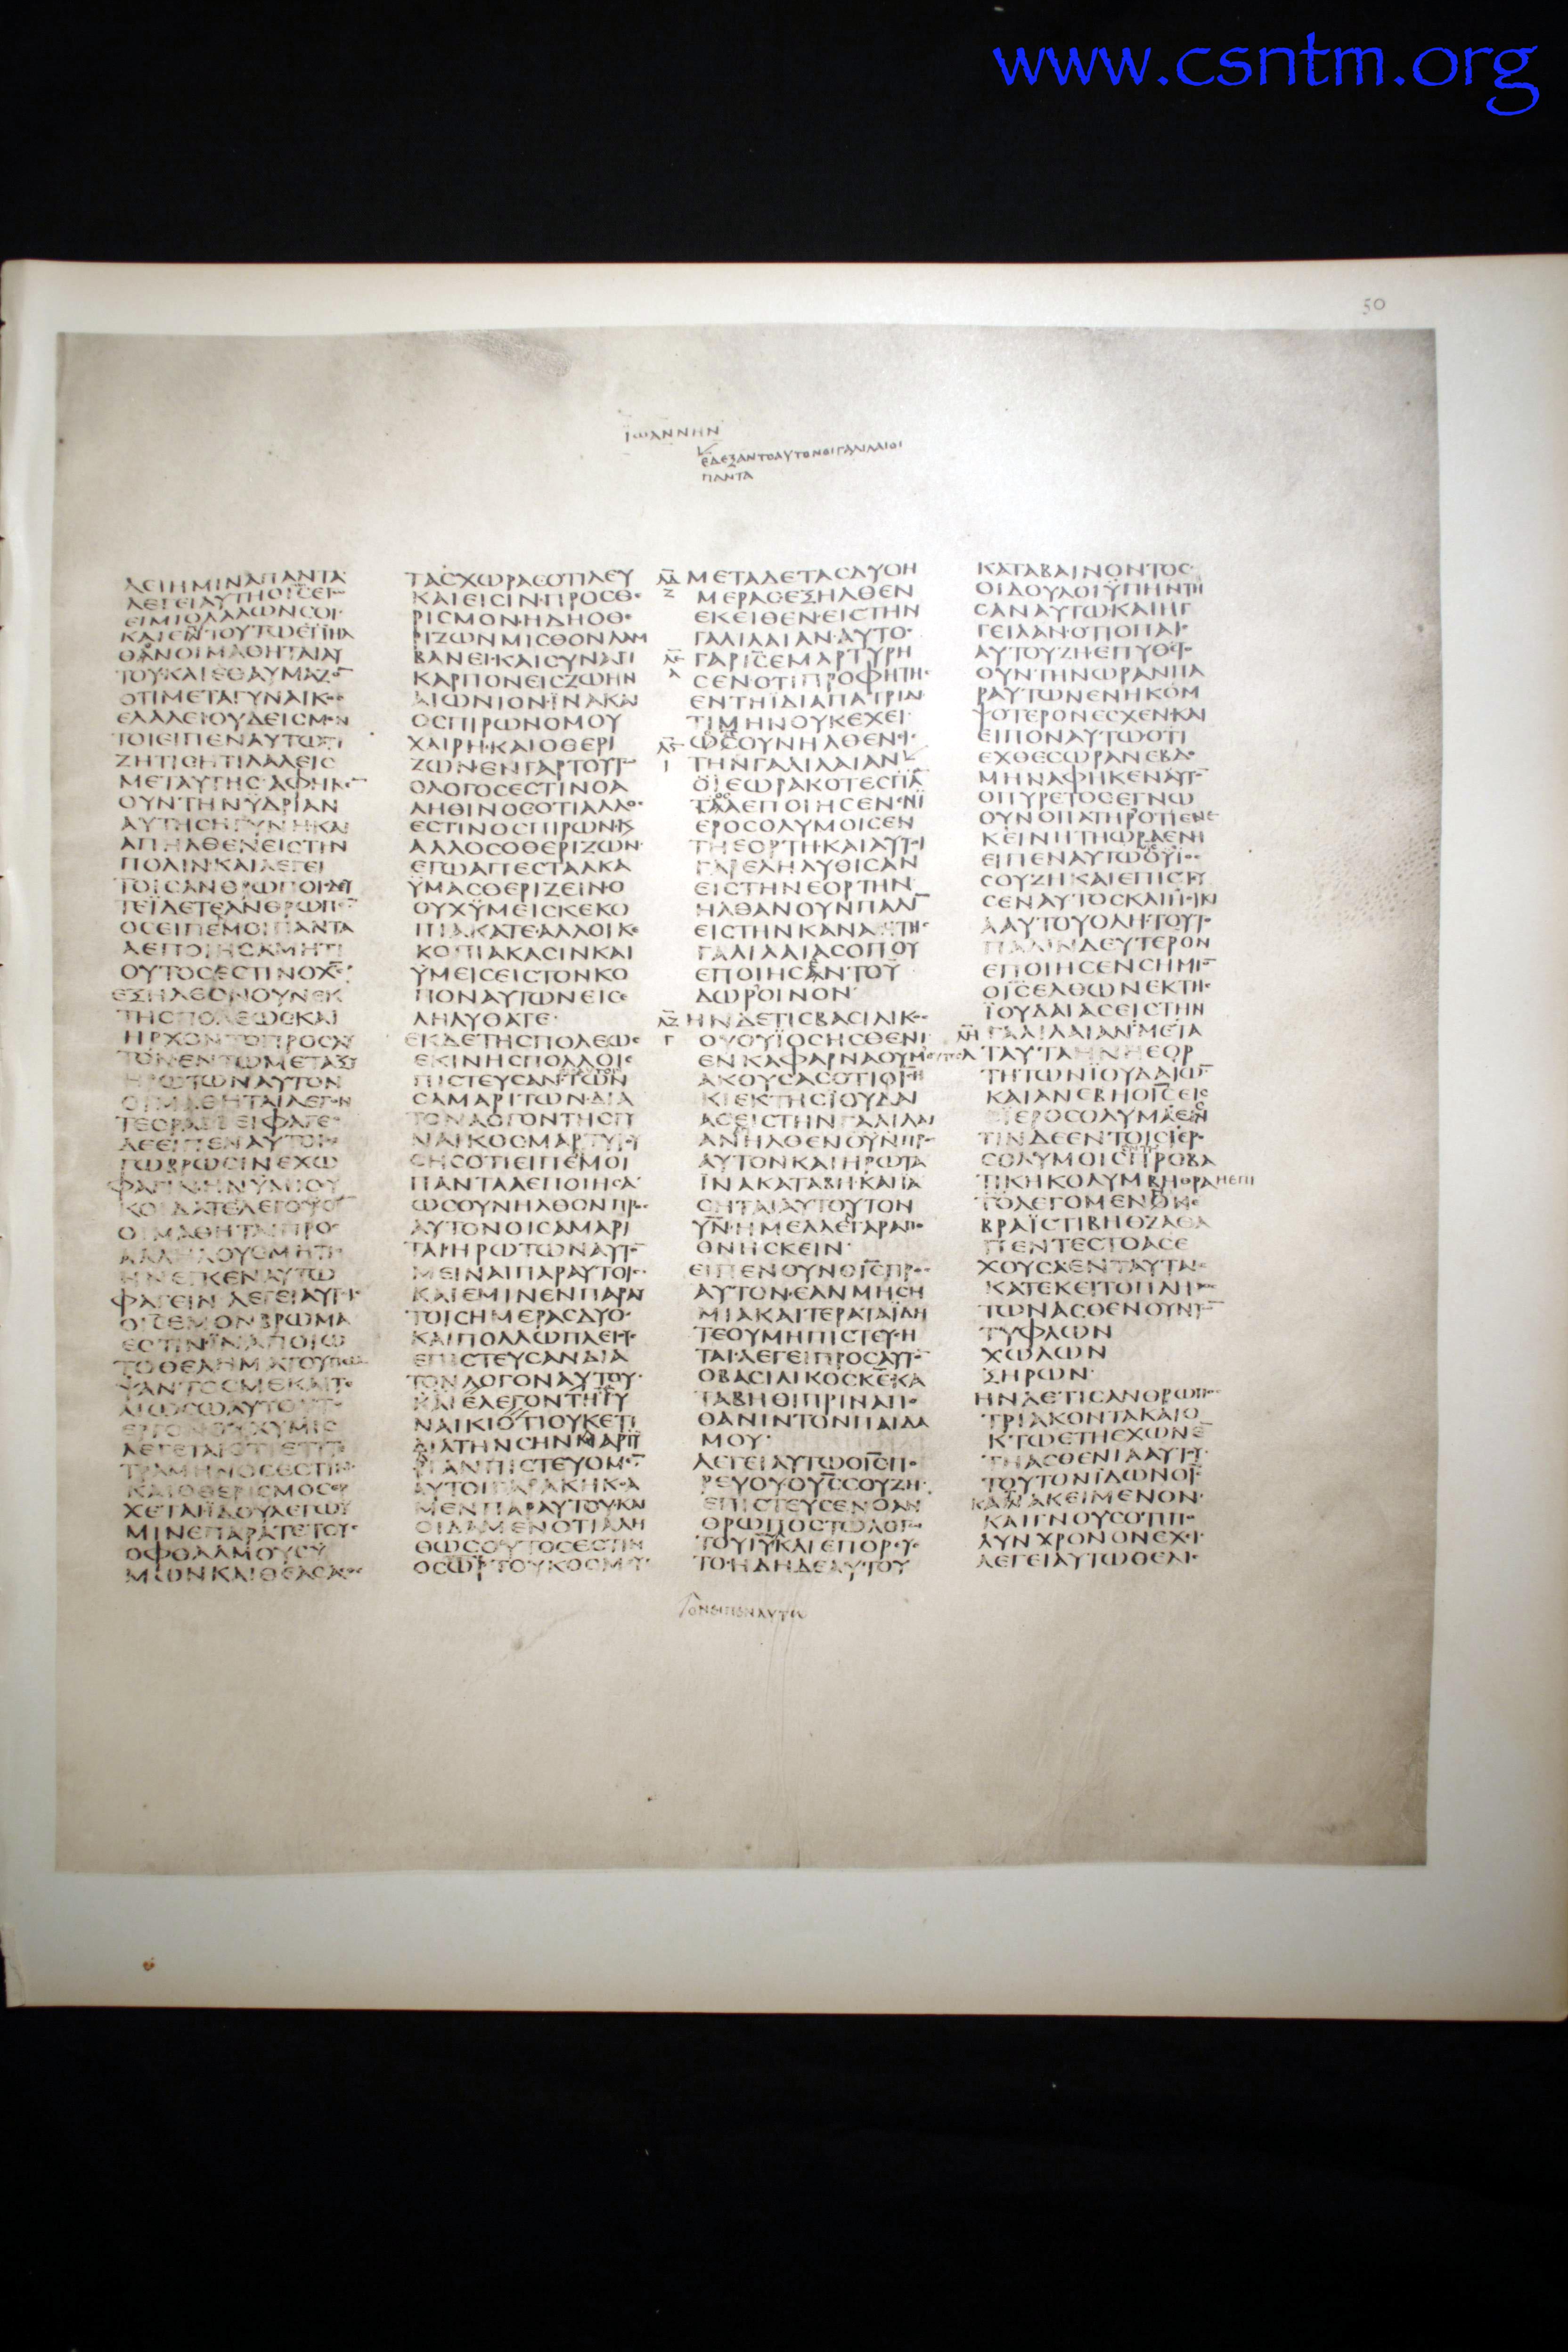 www.csntm.org
50
ΙΩΑΝΝΗΝ
ΕΔΕΞΑΝΤΟΑΥΤΟΝΟΙΓΑΛΙΛΑΙΟΙ
ΠΑΝΤΑ
ΛΕΙΗΜΙΝΑΠΑΝΤΑ
ΛΕΓΕΙΑΥΤΗΟΙ̅Σ̅ΕΓΩ
ΕΙΜΙΟΛΑΛΩΝΣΟΙ
ΘΑΝΟΙΜΑΘΗΤΑΙΑΥ
ΤΟΥΚΑΙΕΘΑΥΜΑΖΟ̅
ΟΤΙΜΕΤΑΓΥΝΑΙΚΟϹ
ΕΛΑΛΕΙΟΥΔΕΙϹΜΕΝ
ΤΟΙΕΙΠΕΝΑΥΤΩΤΙ
ΖΗΤΙϹΗΤΙΛΑΛΕΙϹ
ΜΕΤΑΥΤΗϹΑΦΗΚΕ̅
ΟΥΝΤΗΝΫΔΡΙΑΝ
ΑΥΤΗϹΗΓΥΝΗΚΑΙ
ΑΠΗΛΘΕΝΕΙϹΤΗΝ
ΠΟΛΙΝΚΑΙΛΕΓΕΙ
ΤΟΙϹΑΝΘΡΩΠΟΙϹΔΕΥ
ΤΕΪΔΕΤΕΑΝΘΡΩΠΟ̅
ΟϹΕΙΠΕΜΟΙΠΑΝΤΑ
ΑΕΠΟΙΗϹΑΜΗΤΙ
ΟΥΤΟϹΕϹΤΙΝΟΧ̅Ϲ̅
ΕΞΗΛΘΟΝΟΥΝΕΚ
ΤΗϹΠΟΛΕΩϹΚΑΙ
ΗΡΧΟΝΤΟΠΡΟϹΑΥ
ΤΟΝΕΝΤΩΜΕΤΑΞΥ
ΗΡΩΤΩΝΑΥΤΟΝ
ΟΙΜΑΘΗΤΑΙΛΕΓΟΝ
ΤΕϹΡΑΒΒΕΙΦΑΓΕΟ
ΔΕΕΙΠΕΝΑΥΤΟΙϹΕ
ΓΩΒΡΩϹΙΝΕΧΩ
ΦΑΓΙΝΗΝΫΜΙϹΟΥ
ΚΟΙΔΑΤΕΛΕΓΟΥϹΙ̅
ΟΙΜΑΘΗΤΑΙΠΡΟϹ
ΑΛΛΗΛΟΥϹΜΗΤΙϹ
ΗΝΕΓΚΕΝΑΥΤΩ
ΦΑΓΕΙΝΛΕΓΕΙΑΥΤΟΙϹ
ΟΙ̅Ϲ̅ΕΜΟΝΒΡΩΜΑ
ΕϹΤΙΝΪΝΑΠΟΙΩ
ΤΟΘΕΛΗΜΑΤΟΥΠΕΜ
ΨΑΝΤΟϹΜΕΚΑΙΤΕ
ΛΙΩϹΩΑΥΤΟΥΤΟ
ΕΡΓΟΝΟΥΧΥΜΙϹ
ΛΕΓΕΤΑΙΟΤΙΕΤΙΤΕ
ΤΡΑΜΗΝΟϹΕϹΤΙΝ
ΚΑΙΟΘΕΡΙϹΜΟϹΕΡ
ΧΕΤΑΙΪΔΟΥΛΕΓΩΫ
ΜΙΝΕΠΑΡΑΤΕΤΟΥϹ
ΟΦΘΑΛΜΟΥϹΫ
ΜΩΝΚΑΙΘΕΑϹΑϹΘΕ
ΤΑϹΧΩΡΑϹΟΤΙΛΕΥ
ΚΑΙΕΙϹΙΝΠΡΟϹΘΕ
ΡΙϹΜΟΝΗΔΗΟΘΕ
ΡΙΖΩΝΜΙϹΘΟΝΛΑΜ
ΒΑΝΕΙΚΑΙϹΥΝΑΓΙ
ΚΑΡΠΟΝΕΙϹΖΩΗΝ
ΑΙΩΝΙΟΝΪΝΑΚΑΙ
ΟϹΠΙΡΩΝΟΜΟΥ
ΧΑΙΡΗΚΑΙΟΘΕΡΙ
ΖΩΝΕΝΓΑΡΤΟΥΤΩ
ΟΛΟΓΟϹΕϹΤΙΝΟΑ
ΛΗΘΙΝΟϹΟΤΙΑΛΛΟϹ
ΕϹΤΙΝΟϹΠΙΡΩΝΚΑΙ
ΑΛΛΟϹΟΘΕΡΙΖΩΝ
ΕΓΩΑΠΕϹΤΑΛΚΑ
ΫΜΑϹΘΕΡΙΖΕΙΝΟ
ΟΥΧΫΜΕΙϹΚΕΚΟ
ΠΙΑΚΑΤΕΑΛΛΟΙΚΕ
ΚΟΠΙΑΚΑϹΙΝΚΑΙ
ΫΜΕΙϹΕΙϹΤΟΝΚΟ
ΠΟΝΑΥΤΩΝΕΙϹΕ
ΛΗΛΥΘΑΤΕ
ΕΚΔΕΤΗϹΠΟΛΕΩϹ
ΕΚΙΝΗϹΠΟΛΛΟΙΕ
ΠΙϹΤΕΥϹΑΝΤΩΝ
ϹΑΜΑΡΙΤΩΝΔΙΑ
ΤΟΝΛΟΓΟΝΤΗϹΓΥ
ΝΑΙΚΟϹΜΑΡΤΥΡΟΥ
ϹΗϹΟΤΙΕΙΠΕΜΟΙ
ΠΑΝΤΑΑΕΠΟΙΗϹΑ
ΩϹΟΥΝΗΛΘΟΝΠΡΟϹ
ΑΥΤΟΝΟΙϹΑΜΑΡΙ
ΤΑΙΗΡΩΤΩΝΑΥΤΟ̅
ΜΕΙΝΑΙΠΑΡΑΥΤΟΙϹ
ΚΑΙΕΜΙΝΕΝΠΑΡΑΥ
ΤΟΙϹΗΜΕΡΑϹΔΥΟ
ΚΑΙΠΟΛΛΩΠΛΕΙΟΥϹ
ΕΠΙϹΤΕΥϹΑΝΔΙΑ
ΤΟΝΛΟΓΟΝΑΥΤΟΥ
ΚΑΙΕΛΕΓΟΝΤΗΓΥ
ΝΑΙΚΙΟΤΙΟΥΚΕΤΙ
ΔΙΑΤΗΝϹΗΝΜΑΡΤΥ
ΡΙΑΝΠΙϹΤΕΥΟΜΕ̅
ΑΥΤΟΙΓΑΡΑΚΗΚΟΑ
ΜΕΝΠΑΡΑΥΤΟΥΚΑΙ
ΟΙΔΑΜΕΝΟΤΙΑΛΗ
ΘΩϹΟΥΤΟϹΕϹΤΙΝ
ΟϹΩ̅Ρ̅ΤΟΥΚΟϹΜΟΥ
ΜΕΤΑΔΕΤΑϹΔΥΟΗ
ΜΕΡΑϹΕΞΗΛΘΕΝ
ΕΚΕΙΘΕΝΕΙϹΤΗΝ
ΓΑΛΙΛΑΙΑΝΑΥΤΟϹ
ΓΑΡΙ̅Ϲ̅ΕΜΑΡΤΥΡΗ
ϹΕΝΟΤΙΠΡΟΦΗΤΗϹ
ΕΝΤΗΪΔΙΑΠΑΤΡΙΔΙ
ΤΙΜΗΝΟΥΚΕΧΕΙ
ΩϹΟΥΝΗΛΘΕΝΕΙϹ
ΤΗΝΓΑΛΙΛΑΙΑΝ
ΟΙΕΩΡΑΚΟΤΕϹΠΑ̅
ΤΑΑΕΠΟΙΗϹΕΝΕΝΪ
ΕΡΟϹΟΛΥΜΟΙϹΕΝ
ΤΗΕΟΡΤΗΚΑΙΑΥΤΟΙ
ΓΑΡΕΛΗΛΥΘΙϹΑΝ
ΕΙϹΤΗΝΕΟΡΤΗΝ
ΗΛΘΑΝΟΥΝΠΑΛΙ̅
ΕΙϹΤΗΝΚΑΝΑΤΗϹ
ΓΑΛΙΛΑΙΑϹΟΠΟΥ
ΕΠΟΙΗϹΑΝΤΟΫ
ΔΩΡΟΙΝΟΝ
ΗΝΔΕΤΙϹΒΑϹΙΛΙΚΟϹ
ΟΥΟΥΪΟϹΗϹΘΕΝΙ
ΕΝΚΑΦΑΡΝΑΟΥΜ
ΑΚΟΥϹΑϹΟΤΙΟΙ̅Ϲ̅Η
ΚΙΕΚΤΗϹΪΟΥΔΑΙ
ΑϹΕΙϹΤΗΝΓΑΛΙΛΑΙ
ΑΝΗΛΘΕΝΟΥΝΠΡΟϹ
ΑΥΤΟΝΚΑΙΗΡΩΤΑ
ΪΝΑΚΑΤΑΒΗΚΑΙΪΑ
ϹΗΤΑΙΑΥΤΟΥΤΟΝ
Υ̅Ν̅ΗΜΕΛΛΕΓΑΡΑΠΟ
ΘΝΗϹΚΕΙΝ
ΕΙΠΕΝΟΥΝΟΙ̅Ϲ̅ΠΡΟϹ
ΑΥΤΟΝΕΑΝΜΗϹΗ
ΜΙΑΚΑΙΤΕΡΑΤΑΪΔΗ
ΤΕΟΥΜΗΠΙϹΤΕΥϹΗ
ΤΑΙΛΕΓΕΙΠΡΟϹΑΥΤΟ̅
ΟΒΑϹΙΛΙΚΟϹΚ̅Ε̅ΚΑ
ΤΑΒΗΘΙΠΡΙΝΑΠΟ
ΘΑΝΙΝΤΟΝΠΑΙΔΑ
ΜΟΥ
ΛΕΓΕΙΑΥΤΩΟΙ̅Ϲ̅ΠΟ
ΡΕΥΟΥΟΥ̅Ϲ̅ϹΟΥΖΗ
ΕΠΙϹΤΕΥϹΕΝΟΑΝ
ΘΡΩΠΟϹΤΩΛΟΓΩ
ΤΟΥΙ̅Υ̅ΚΑΙΕΠΟΡΕΥΕ
ΤΟΗΔΗΔΕΑΥΤΟΥ
ΤΟΝΕΙΠΕΝΑΥΤΩ
ΚΑΤΑΒΑΙΝΟΝΤΟϹ
ΟΙΔΟΥΛΟΙΫΠΗΝΤΗ
ϹΑΝΑΥΤΩΚΑΙΗΓ
ΓΕΙΛΑΝΟΤΙΟΠΑΙϹ
ΑΥΤΟΥΖΗΕΠΥΘΕΤΟ
ΟΥΝΤΗΝΩΡΑΝΠΑ
ΡΑΥΤΩΝΕΝΗΚΟΜ
ΨΟΤΕΡΟΝΕϹΧΕΝΚΑΙ
ΕΙΠΟΝΑΥΤΩΟΤΙ
ΕΧΘΕϹΩΡΑΝΕΒΔΟ
ΜΗΝΑΦΗΚΕΝΑΥΤΟ̅
ΟΠΥΡΕΤΟϹΕΓΝΩ
ΟΥΝΟΠΑΤΗΡΟΤΙΕΝΕ
ΚΕΙΝΗΤΗΩΡΑΕΝΗ
ΕΙΠΕΝΑΥΤΩΟΥΪΟϹ
ϹΟΥΖΗΚΑΙΕΠΙϹΤΕΥ
ϹΕΝΑΥΤΟϹΚΑΙΗΟΙΚΙ
ΑΑΥΤΟΥΟΛΗΤΟΥΤΟ
ΠΑΛΙΝΔΕΥΤΕΡΟΝ
ΕΠΟΙΗϹΕΝϹΗΜΙΟ̅
ΟΙ̅Ϲ̅ΕΛΘΩΝΕΚΤΗϹ
ΪΟΥΔΑΙΑϹΕΙϹΤΗΝ
ΓΑΛΙΛΑΙΑΝΜΕΤΑ
ΤΑΥΤΑΗΝΗΕΟΡ
ΤΗΤΩΝΪΟΥΔΑΙΩ̅
ΚΑΙΑΝΕΒΗΟΙ̅Ϲ̅ΕΙϹ
ΪΕΡΟϹΟΛΥΜΑΕϹΤΙΝ
ΤΙΝΔΕΕΝΤΟΙϹΪΕΡΟ
ϹΟΛΥΜΟΙϹΠΡΟΒΑ
ΤΙΚΗΚΟΛΥΜΒΗΘΡΑ
ΤΟΛΕΓΟΜΕΝΟΝΕ
ΒΡΑΪϹΤΙΒΗΘΖΑΘΑ
ΠΕΝΤΕϹΤΟΑϹΕ
ΧΟΥϹΑΕΝΤΑΥΤΑΙϹ
ΚΑΤΕΚΕΙΤΟΠΛΗΘΟϹ
ΤΩΝΑϹΘΕΝΟΥΝΤΩ̅
ΤΥΦΛΩΝ
ΧΩΛΩΝ
ΞΗΡΩΝ
ΗΝΔΕΤΙϹΑΝΘΡΩΠΟϹ
ΤΡΙΑΚΟΝΤΑΚΑΙΟ
ΚΤΩΕΤΗΕΧΩΝΕ̅
ΤΗΑϹΘΕΝΙΑΑΥΤΟΥ
ΤΟΥΤΟΝΪΔΩΝΟΙ̅Ϲ̅
ΚΑΤΑΚΕΙΜΕΝΟΝ
ΚΑΙΓΝΟΥϹΟΤΙΠΟ
ΛΥΝΧΡΟΝΟΝΕΧΕΙ
ΛΕΓΕΙΑΥΤΩΘΕΛΕΙϹ